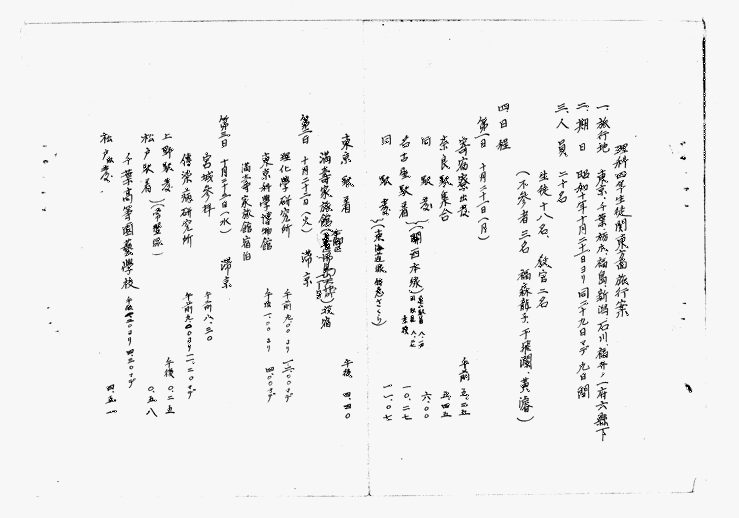 理科四年生徒関東方面旅行案
一、旅行地 東京、千葉、栃木、福島、新潟、石川、福井、一府六縣下
二、期日 昭和十年十月二十一日ヨリ同二十九日マデ九日間
三、人員 生徒十八名、教官二名
二十名
(不參者三名
四日程
第一日 十月二十一日(月)
寄宿寮出發 午前五.二五
奈良駅集合 五.四五
同駅發 (関西本線) 六.〇〇
名古屋駅着 一〇.二七
同駅發 (東海道線 さくら) 一一.〇七
東京駅着 午後四.四〇
満壽家旅館 投宿
第二日 十月二十二日(火) 滞京
理化學研究所 午前九.〇〇ヨリ一二.〇〇マデ
東京科學博物館 午後一.〇〇ヨリ四.〇〇マデ
満壽家旅館宿泊
第三日 十月二十三日(水) 滞京
宮城參拝 午前八.三〇
傳染病研究所 午前九.〇〇ヨリ一一.二〇マデ
上野駅發 (常磐線) 午後〇.二五
松戸駅着 〇.五八
千葉高等園藝學校 マデ
松戸駅發 四.五一